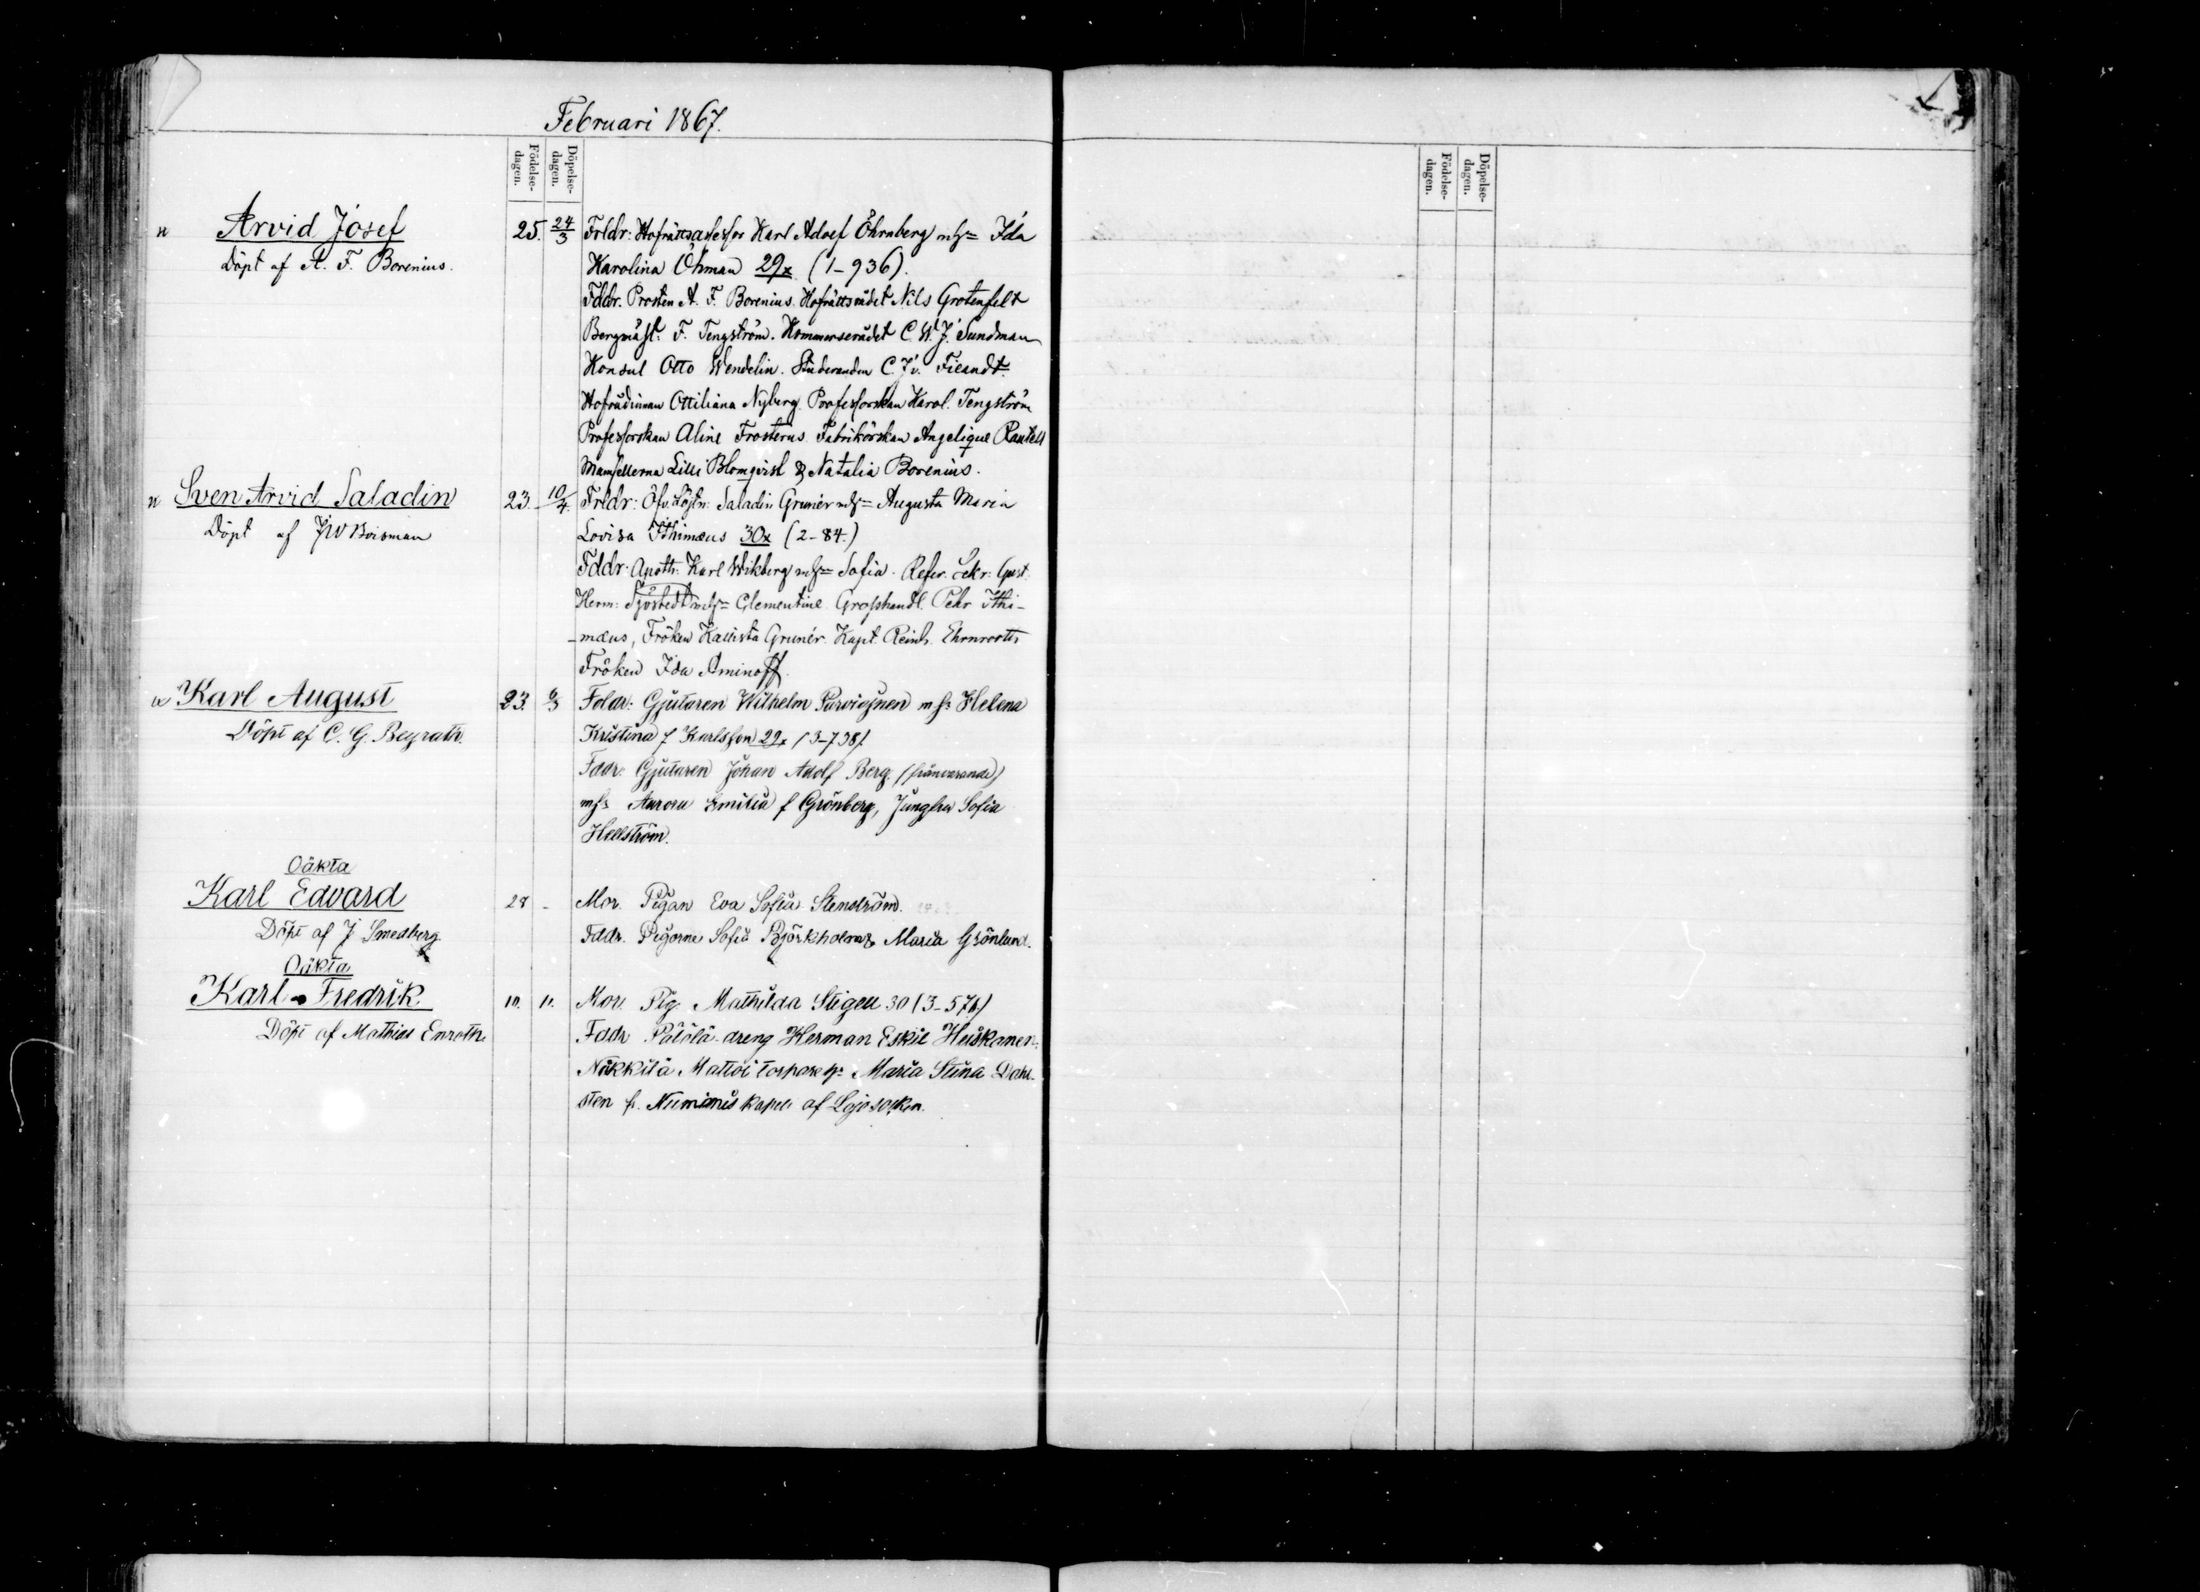 Februari 1867.
Födelse-
dagen.
Döpelse-
dagen.
Födelse-
dagen.
Döpelse-
dagen.
Arvid Josef
Döpt af A. F. Borenius.
25. 24/3
Frldr: Hofrättsassessor Karl Adolf Öhrnberg mhs Ida
Karolina Öhman 29x (1-936).
Fddr. Prosten A. F. Borenius. Hofrättsrådet Nils Grotenfelt
Bergmäst: F. Tengström. Kommerserådet C. W. J. Sundman
Konsul Otto Wendelin. Studeranden C. J. v. Fieandt.
Hofrådinnan Ottiliana Nyberg. Professorskan Karol. Tengström
Professorskan Aline Frosterus Fabrikörskan Angelique Rautell
Mamsellerna Lilli Blomqvist & Natalia Borenius.
Sven Arvid Saladin
Döpt af JW Boisman
23. 10/4.
Frldr: Öfv. Löjtn: Saladin Grunér mhs Augusta Maria
Lovisa Ithimæus 30x (2-84.)
Fddr: Apoth: Karl Wikberg mhs Sofia. Refer. Sekr: Gust.
Herm: Sjöstedt mhs Clementine. Grosshandl. Pehr Ithi-
-mæus, Fröken Kallista Grunér. Kapt. Reinh. Ehrnrooth
Fröken Ida Aminoff.
Karl August
Döpt af C. G. Beyrath.
23. 6/3
Foldr: Gjutaren Wilhelm Parviajnen mhs Helena
Kristina f Karlsson 29x (3-738).
Fddr: Gjutaren Johan Adolf Berg (frånvarande)
mhs Aurora Emilia f Grönberg, Jungfru Sofia
Hellström.
Oäkta
Karl Edvard
Döpt af J Smedberg
28 -
Mor. Pigan Eva Sofia Stenström.
Fddr. Pigorne Sofia Björkholm & Maria Grönlund.
Oäkta
Karl Fredrik
Döpt af Mathias Enroth.
10. 11.
Mor. Pig. Mathilda Stigell 30 (3-576)
Fddr Pätölä dreng Herman Eskil Heiskanen:
Näkkilä Mattoi torpare hs Maria Stina Dahl-
sten fr. Nummis kapell af Lojo sokn.